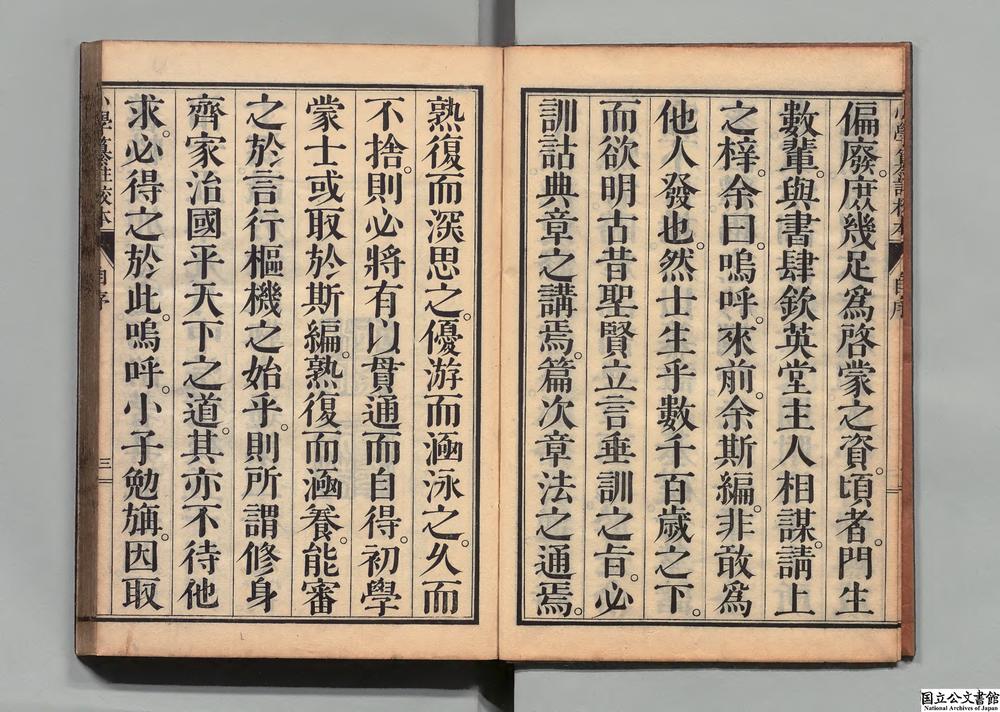 偏廢。庶幾足爲啓蒙之資。頃者。門生
數輩。與書肆欽英堂主人相謀。請上
之梓。余曰。嗚呼。來前。余斯編。非敢爲
他人發也。然士生乎數千百歲之下。
而欲明古昔聖賢立言垂訓之旨。必
訓詁典章之講焉。篇次章法之通焉。
熟復而深思之。優游而涵泳之。久而
不捨。則必將有以貫通而自得。初學
蒙士或取於斯編。熟復而涵養。能審
之於言行樞機之始乎。則所謂修身
齊家治國平天下之道。其亦不待他
求。必得之於此。嗚呼。小子勉旃。因取
小學纂註校本
自序
三
国立公文書館
National Archives of Japan